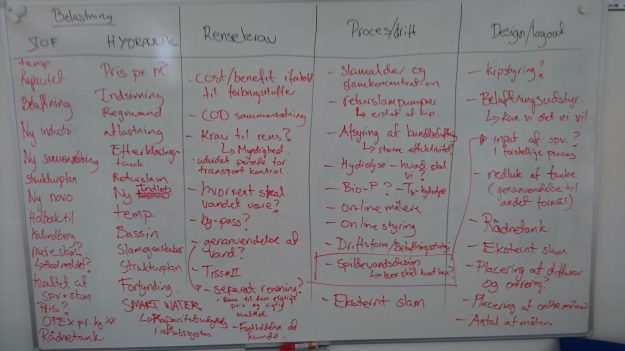 Belastning
STOF
temp.
Kapacitet
Beluftning
Ny industri
Ny sammensætning
Strukturplan
Ny novo
Holbæk til
Kalundborg?
mere slam
Kvalitet af
spv + slam
Pris?
OPEX pr. kg
Rådnetank
HYDRAULIK
Pris pr. m³
Indsivning
Regnvand
aflastning
Efterklarings-
tank
Returslam
Ny Indløb
temp.
Bassin
Slamegenskaber
Strukturplan
Fortynding
SMART WATER
↳ Kapacitet
i afløbssystem
Rensekrav
- cost/benefit i forhold
til forbrugsstoffer
- COD sammensætning
- Krav til rens.?
↳ Myndighed
transport kontrol.
- hvor rent skal
vandet være?
- by-pass?
- genanvendelse af
vand?
- Tisso II
- separat rensning?
- Fastholdelse de
kunde.
Proces/drift
- slamalder og
slamkoncentration
- returslampumper
↳ erstat af
- Afsyring af bundbeluftning
↳ større effektivitet?
- Hydrolyse - hvad skal
vi?
- Bio-P?
- On-line målere
- online styring
- Driftsform/Beluftningsstrategi
- Spildevandsdesign
↳ hvor skal hvad hen?
- Eksternt slam
Design/layout
- kipstyring?
- Beluftningsudstyr
↳ kan vi det vi vil.
- input af spv.?
i forskellige proces
- nedluk af tanke
(genanvendelse til
andet formål)
- Rådnetank
- Eksternt slam
- Placering af diffusor
og omrøring?
- Placering af onlinemålere
- Antal af målere